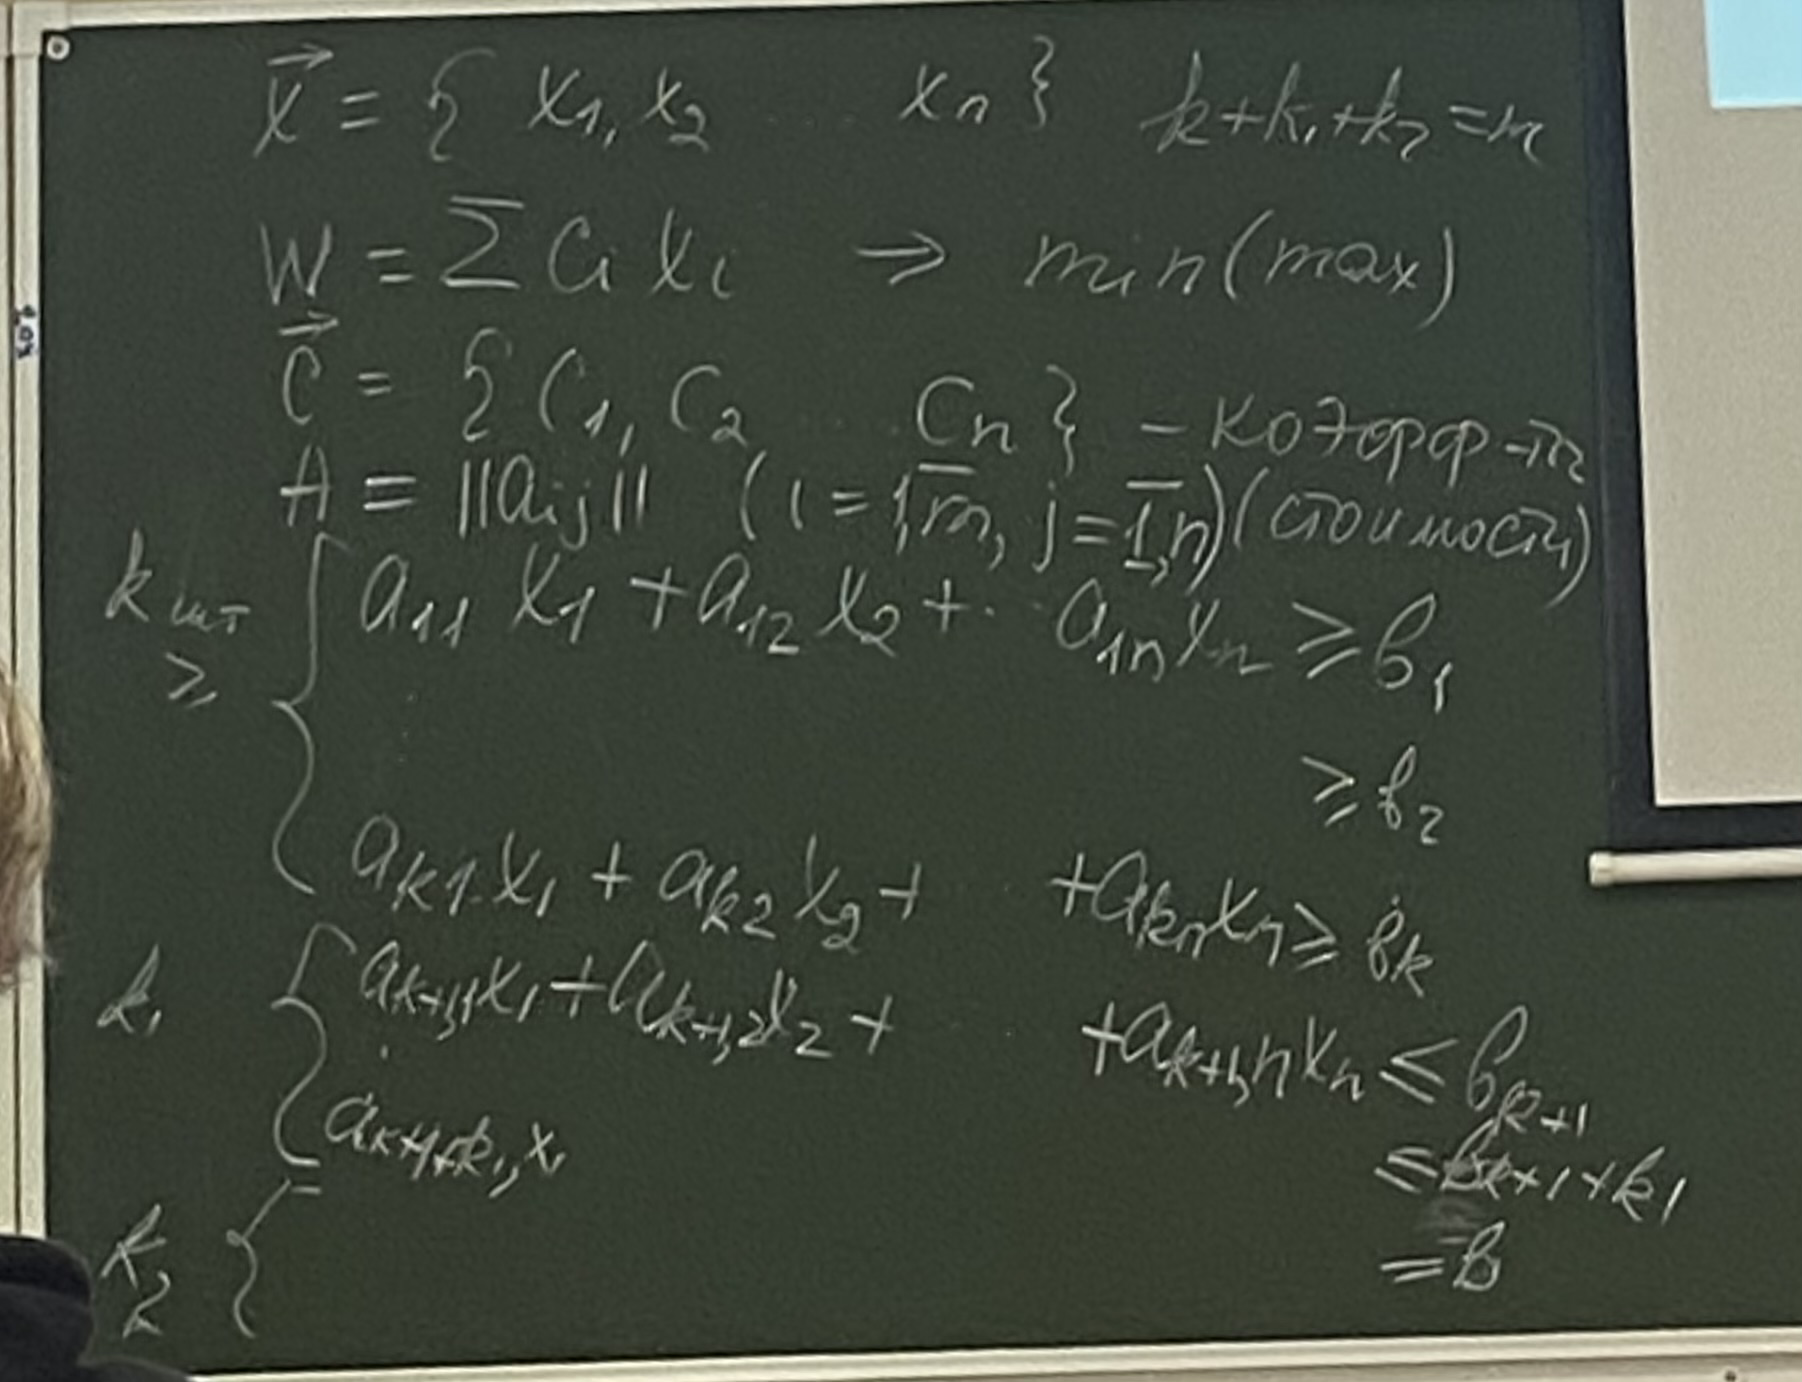 x⃗ = { x₁, x₂ ... xₙ } k+k₁+k₂=m
W = Σ cᵢ xᵢ → min(max)
c⃗ = { c₁, c₂ ... cₙ } – коэфф-ты
A = ||aᵢⱼ|| (i = 1,m, j = 1,n) (стоимости)
k шт ≥ { a₁₁ x₁ + a₁₂ x₂ + ... a₁ₙ xₙ ≥ b₁
≥ b₂
aₖ₁ x₁ + aₖ₂ x₂ + +aₖₙ xₙ ≥ bₖ
k₁ { aₖ₊₁,₁ x₁ + aₖ₊₁,₂ x₂ + +aₖ₊₁,ₙ xₙ ≤ bₖ₊₁
x₁ ≤ bₖ₊₁₊ₖ₁
k₂ { = b